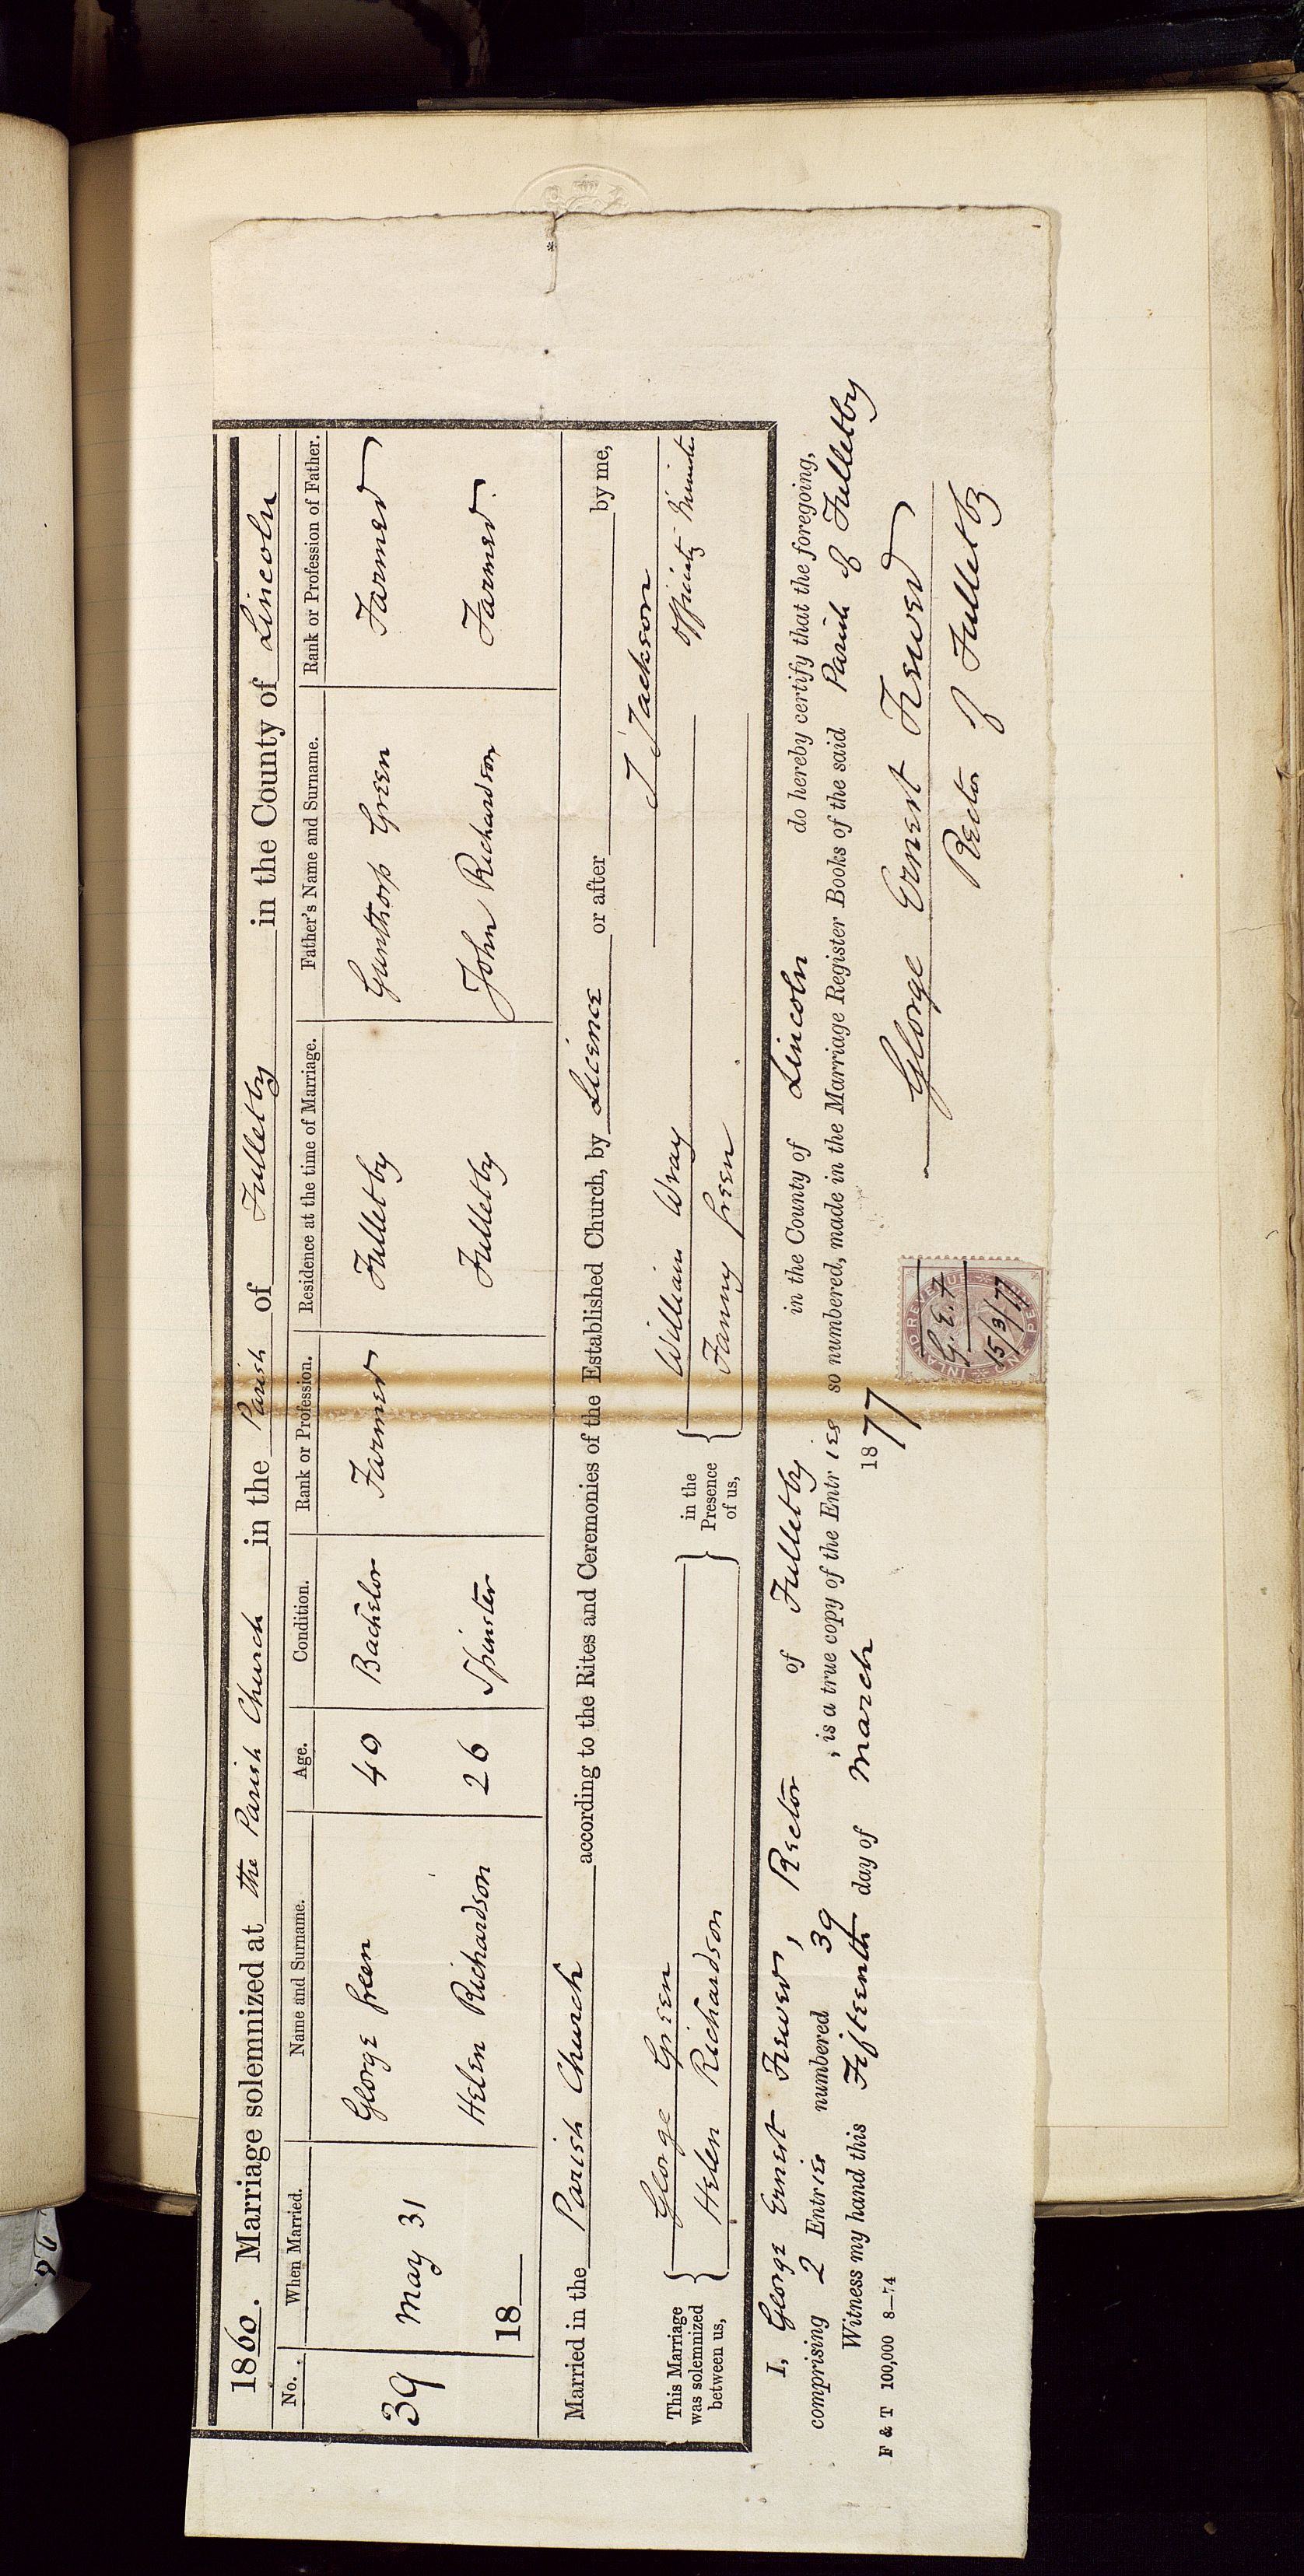 1860. Marriage solemnized at the Parish Church in the Parish of Fulletby in the County of Lincoln
No. When Married. Name and Surname. Age. Condition. Rank or Profession. Residence at the time of Marriage. Father's Name and Surname. Rank or Profession of Father.
39 May 31 George Green 40 Bachelor Farmer Fulletby Gunthorp Green Farmer
18 Helen Richardson 26 Spinster Fulletby John Richardson Farmer.
Married in the Parish Church according to the Rites and Ceremonies of the Established Church, by Licence or after by me,
J Jackson
This Marriage was solemnized between us, George Green in the Presence of us, William Wray Officiatg Minister
Helen Richardson Fanny Green
I, George Ernest Frewer, Rector of Fulletby in the County of Lincoln do hereby certify that the foregoing,
comprising 2 Entries numbered 39, is a true copy of the Entries so numbered, made in the Marriage Register Books of the said Parish of Fulletby
Witness my hand this Fifteenth day of March 1877
George Ernest Frewer
Rector of Fulletby
F & T 100,000 8—74
INLAND REVENUE
ONE PENNY
G.E.F
15/3/77